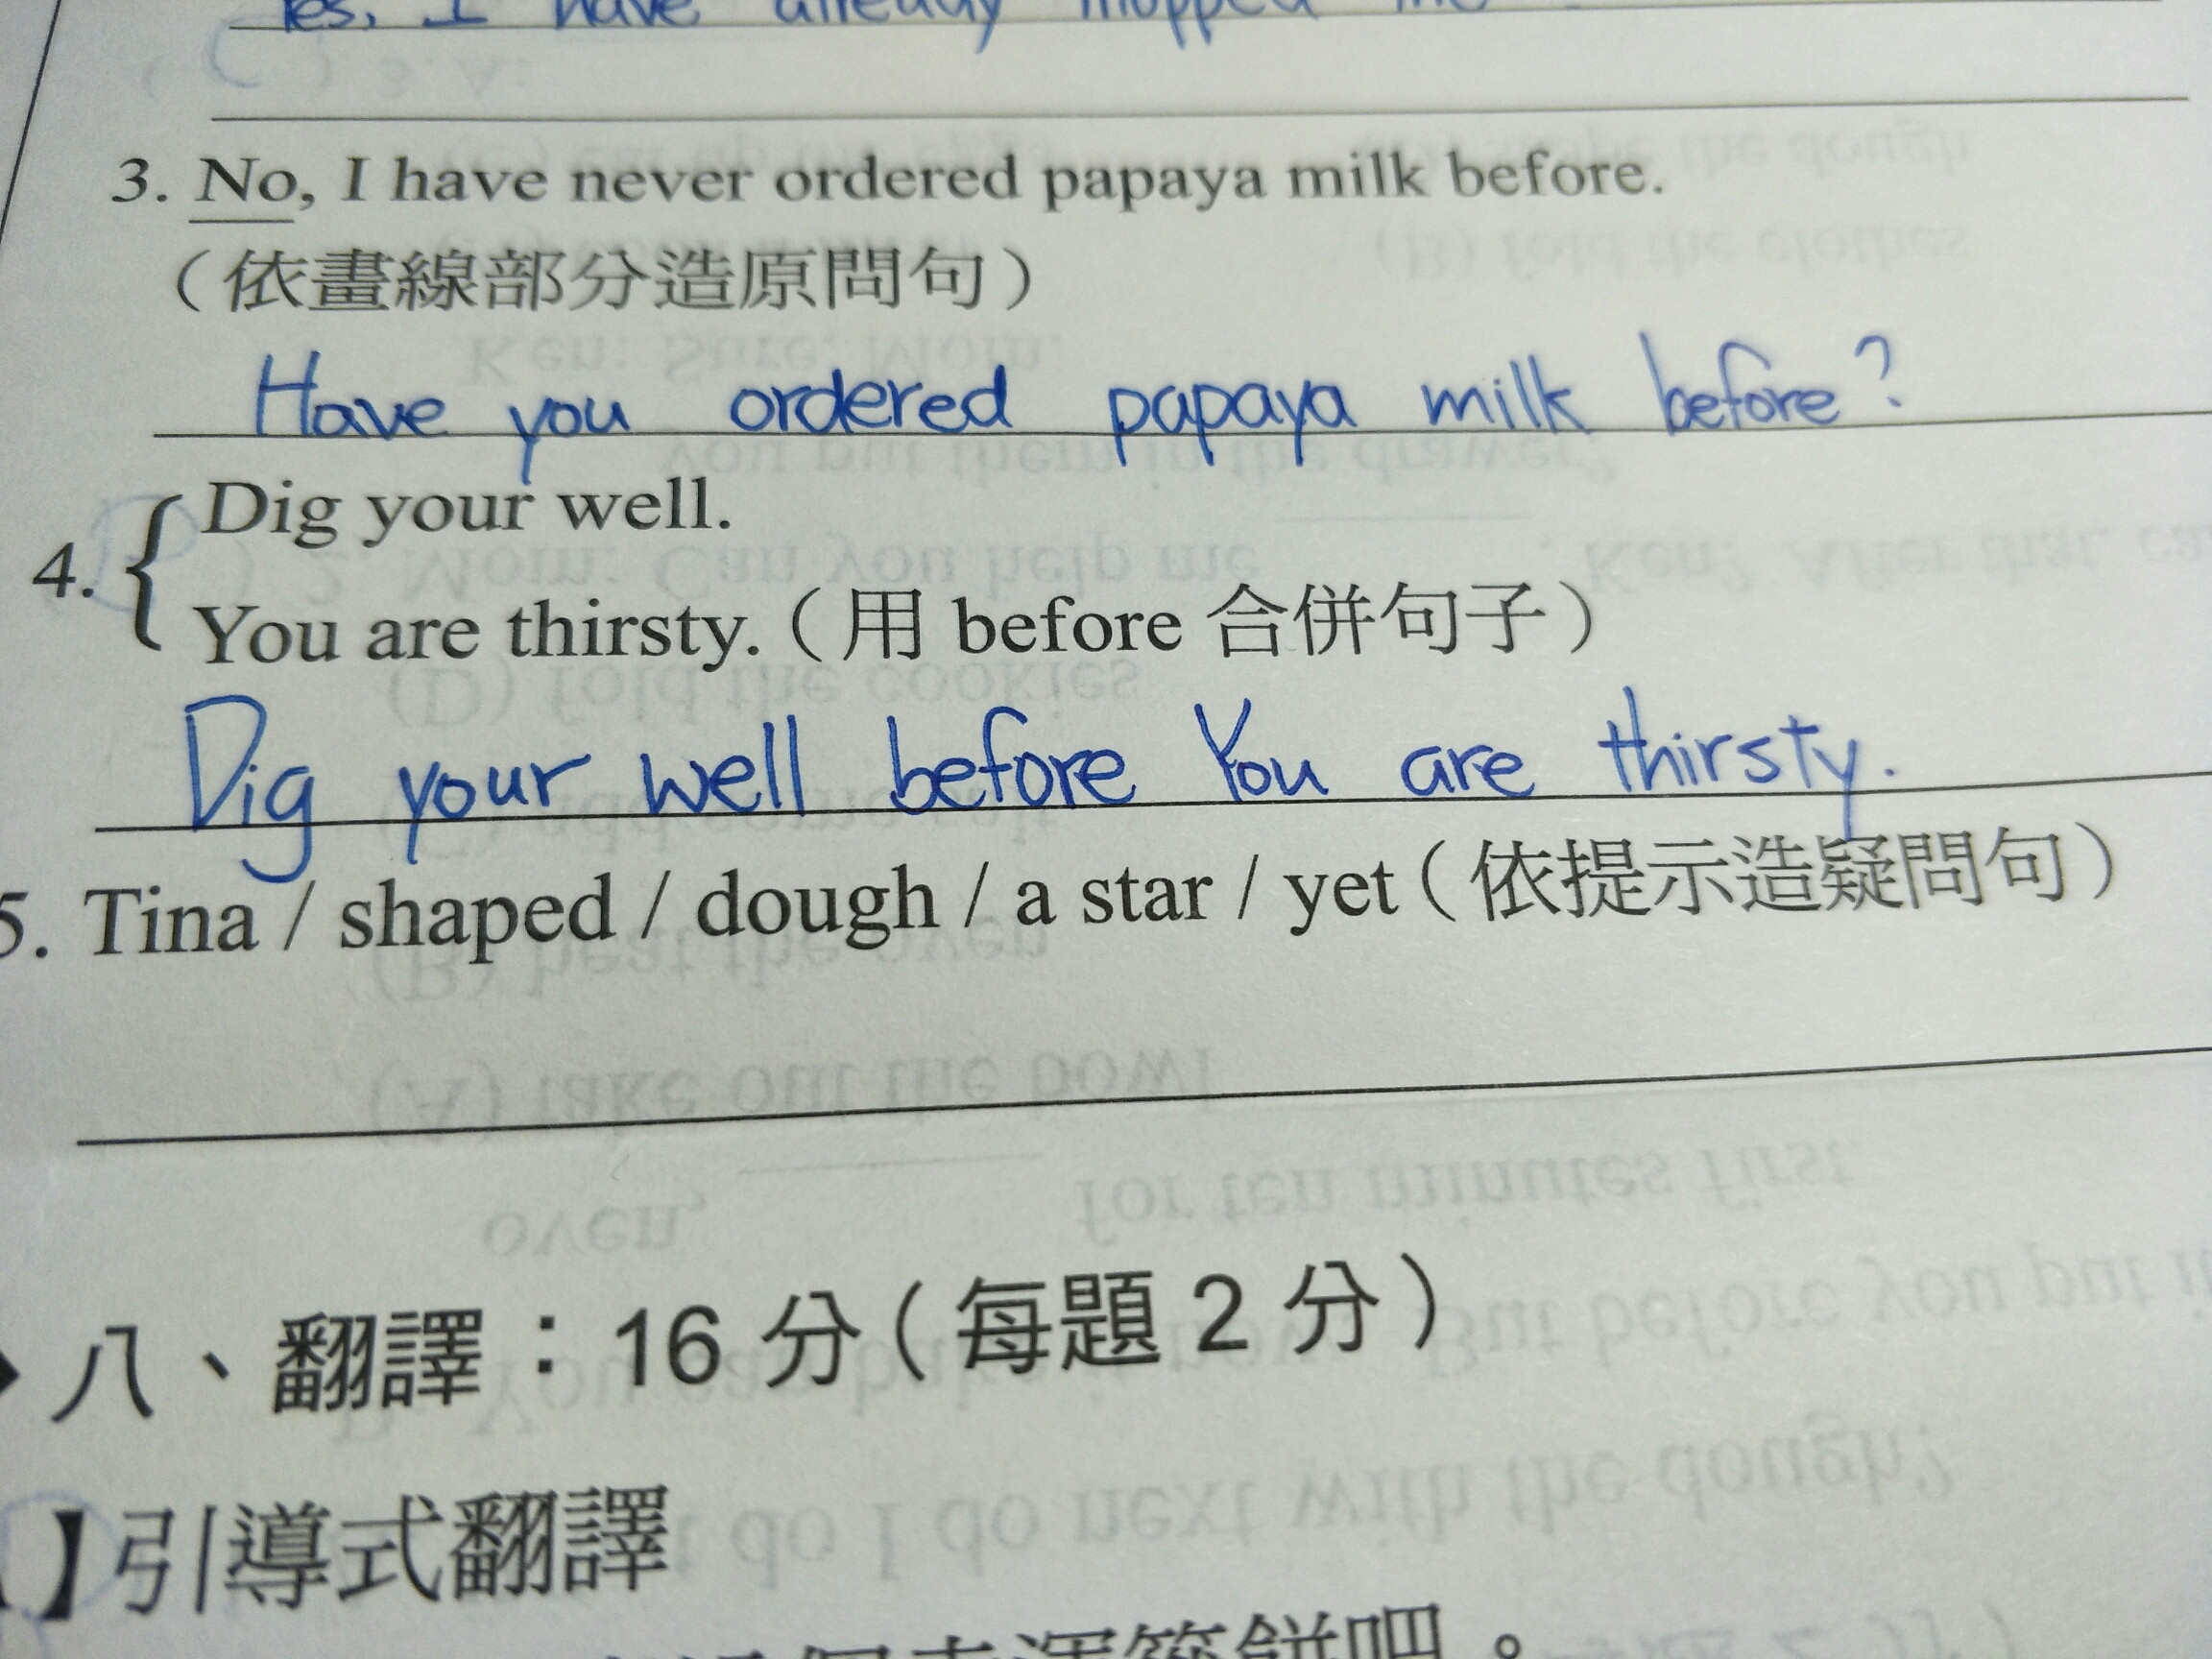 Yes, I have already mopped the
3. No, I have never ordered papaya milk before.
（依畫線部分造原問句）
Have you ordered papaya milk before?
4. { Dig your well.
You are thirsty.（用 before 合併句子）
Dig your well before You are thirsty.
5. Tina / shaped / dough / a star / yet（依提示造疑問句）
八、翻譯：16 分（每題 2 分）
】引導式翻譯
餅吧。